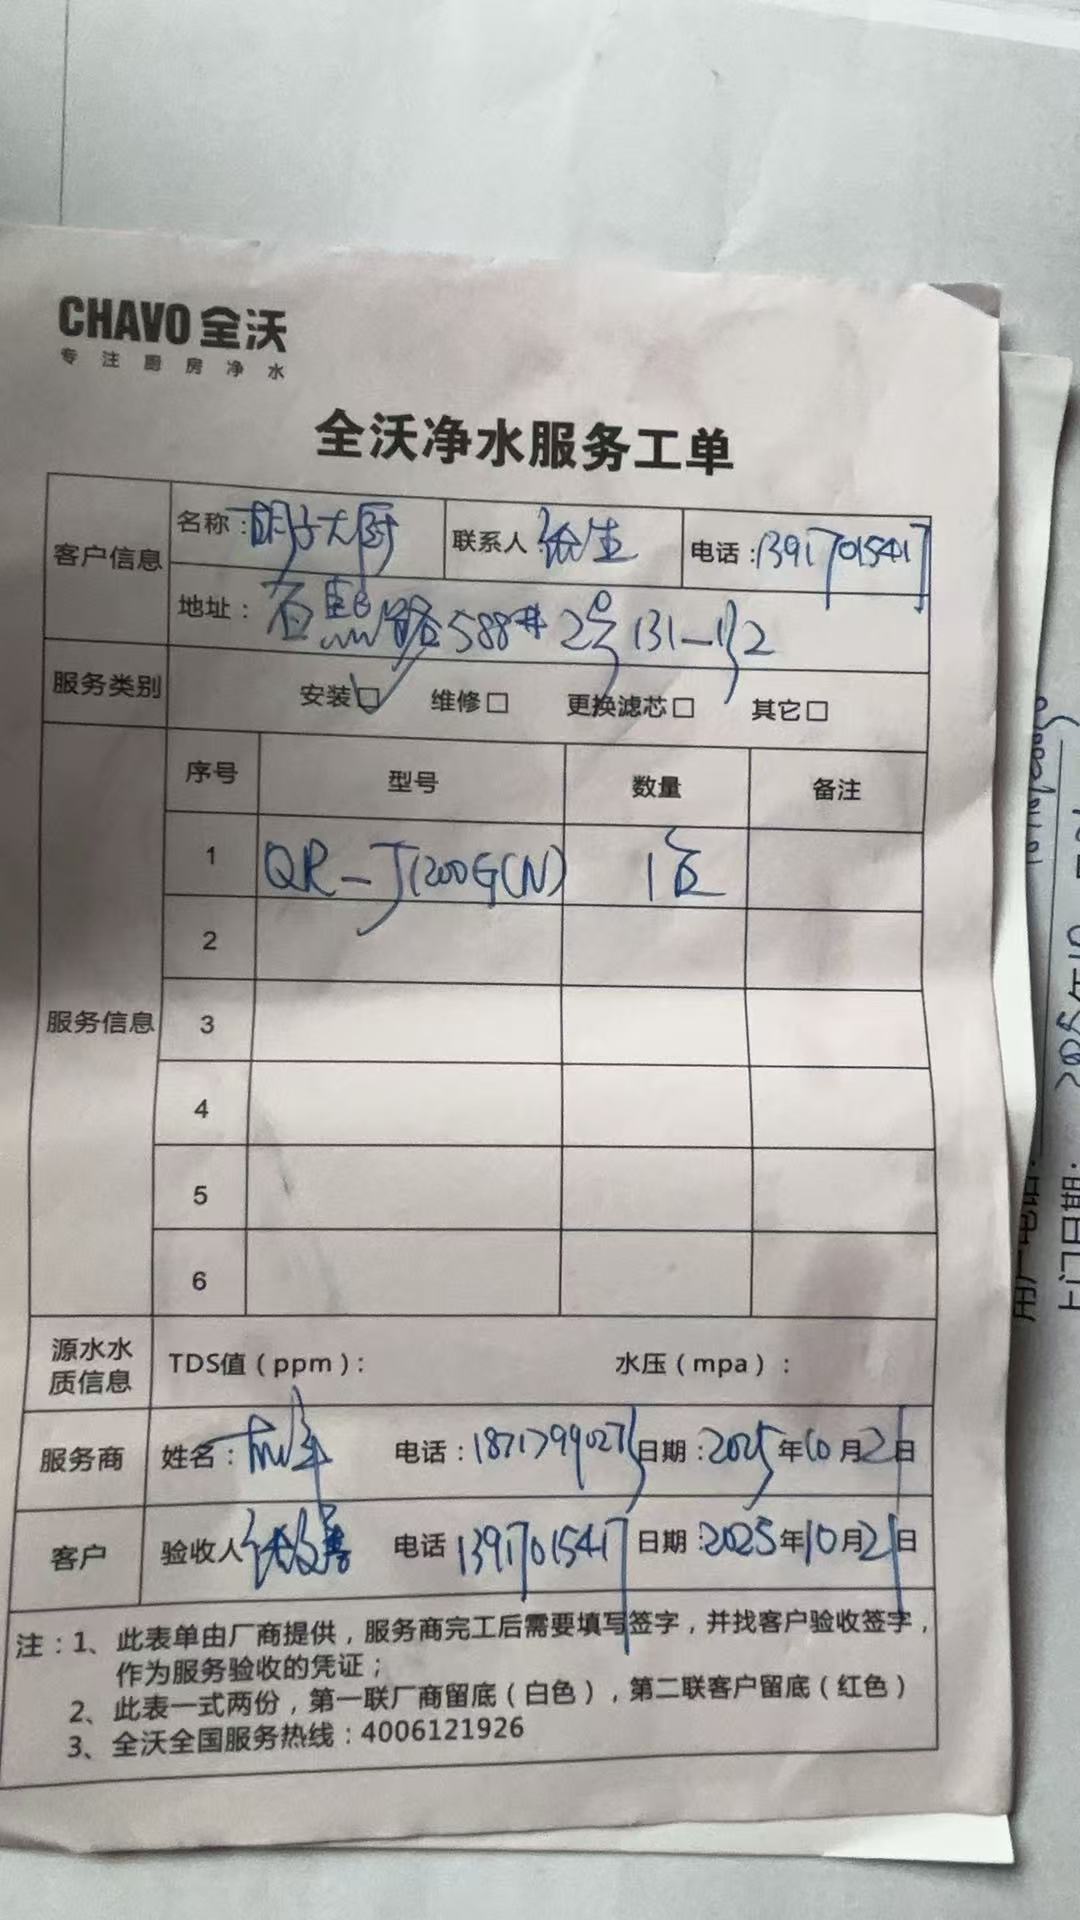 CHAVO 全沃
专注厨房净水
全沃净水服务工单
客户信息
名称：胡子大厨 联系人 徐生 电话：13917015417
地址：古熙路588# 2号131-132
服务类别 安装☑ 维修□ 更换滤芯□ 其它□
服务信息
序号 型号 数量 备注
1 QR-J1200G(N) 1台
2
3
4
5
6
源水水质信息 TDS值（ppm）： 水压（mpa）：
服务商 姓名： 电话：18717990273 日期：2025年10月21日
客户 验收人 电话 13917015417 日期：2025年10月21日
注：1、此表单由厂商提供，服务商完工后需要填写签字，并找客户验收签字，
作为服务验收的凭证；
2、此表一式两份，第一联厂商留底（白色），第二联客户留底（红色）
3、全沃全国服务热线：4006121926
用户电话：
上门日期： 2025年10